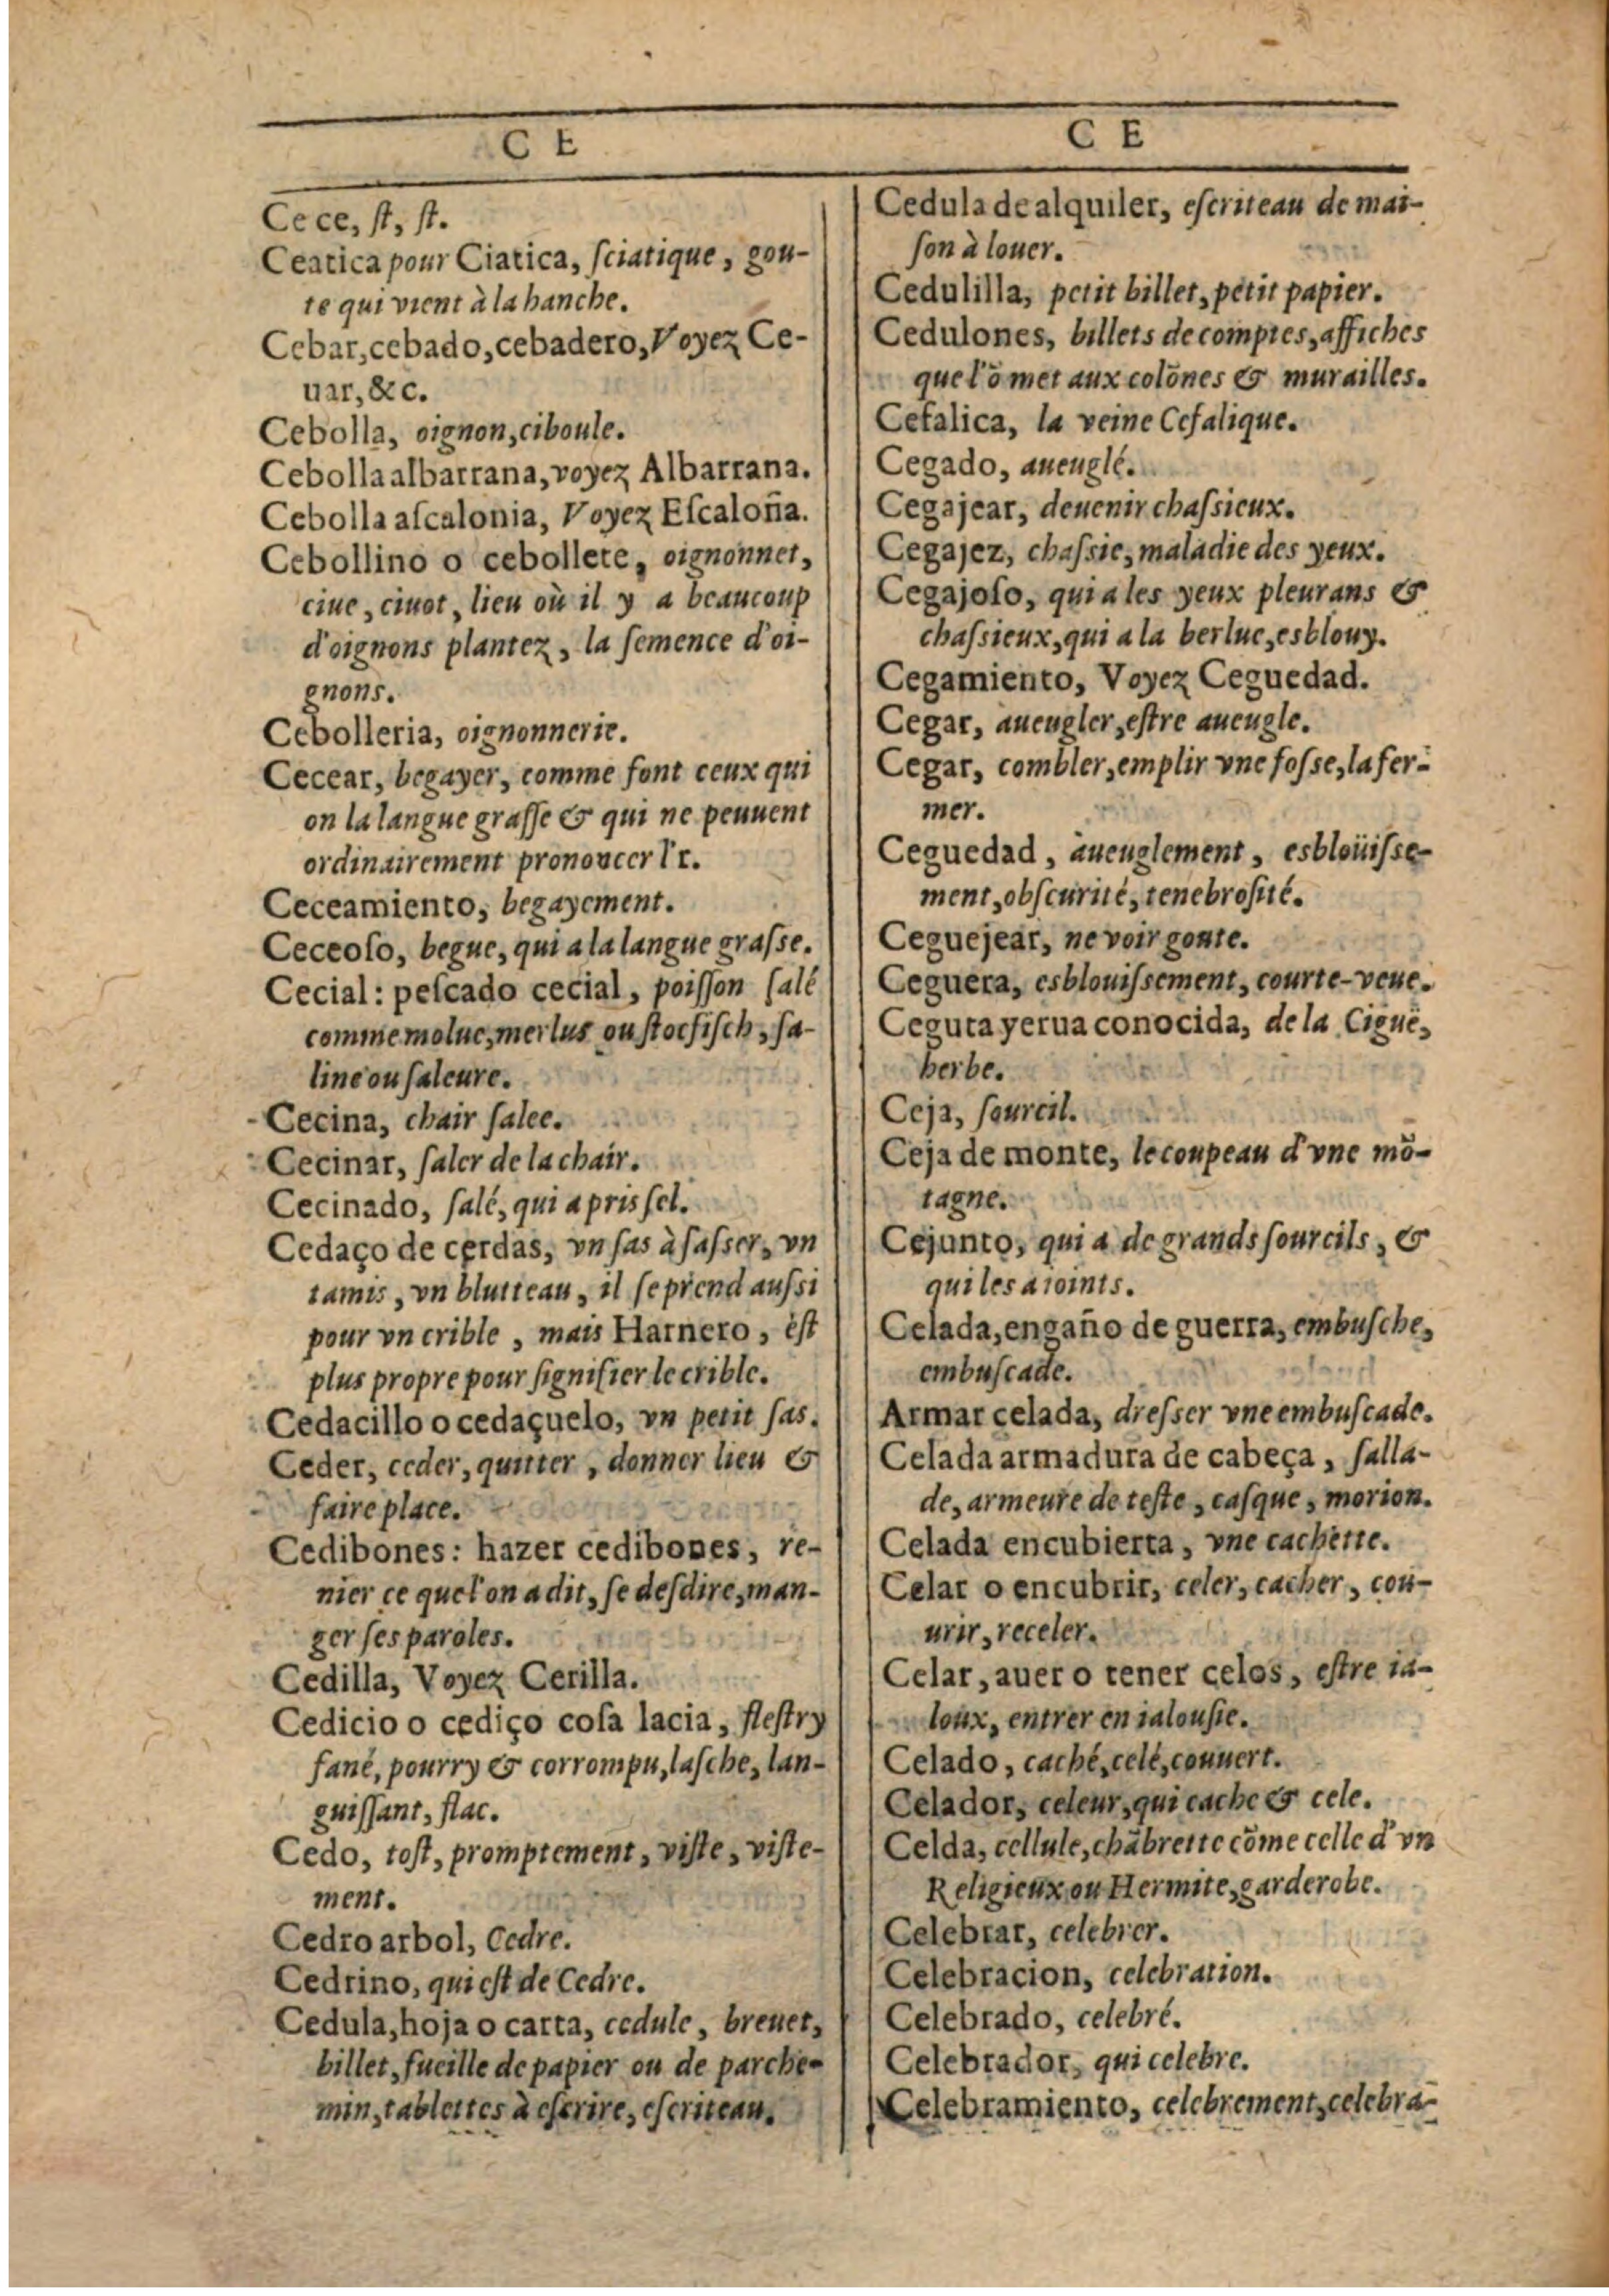 C E
Ce ce, ſt, ſt.
Ceatica pour Ciatica, ſciatique, gou-
te qui vient à la hanche.
Cebar, cebado, cebadero, Voyez Ce-
uar, &c.
Cebolla, oignon, ciboule.
Cebolla albarrana, voyez Albarrana.
Cebolla aſcalonia, Voyez Eſcaloña.
Cebollino o cebollete, oignonnet,
ciue, ciuot, lieu où il y a beaucoup
d'oignons plantez, la ſemence d'oi-
gnons.
Cebolleria, oignonnerie.
Cecear, begayer, comme font ceux qui
on la langue graſſe & qui ne peuuent
ordinairement prononcer l'r.
Ceceamiento, begayement.
Ceceoſo, begue, qui a la langue graſse.
Cecial: peſcado cecial, poiſſon ſalé
comme molue, merlus ou ſtocfiſch, ſa-
line ou ſaleure.
Cecina, chair ſalee.
Cecinar, ſaler de la chair.
Cecinado, ſalé, qui a pris ſel.
Cedaço de cerdas, vn ſas à ſaſser, vn
tamis, vn blutteau, il ſe prend auſsi
pour vn crible, mais Harnero, eſt
plus propre pour ſignifier le crible.
Cedacillo o cedaçuelo, vn petit ſas.
Ceder, ceder, quitter, donner lieu &
faire place.
Cedibones: hazer cedibones, re-
nier ce que l'on a dit, ſe deſdire, man-
ger ſes paroles.
Cedilla, Voyez Cerilla.
Cedicio o cediço coſa lacia, fleſtry
fané, pourry & corrompu, laſche, lan-
guiſſant, flac.
Cedo, toſt, promptement, viſte, viſte-
ment.
Cedro arbol, Cedre.
Cedrino, qui eſt de Cedre.
Cedula, hoja o carta, cedule, breuet,
billet, fueille de papier ou de parche-
min, tablettes à eſcrire, eſcriteau.
C E
Cedula de alquiler, eſcriteau de mai-
ſon à louer.
Cedulilla, petit billet, petit papier.
Cedulones, billets de comptes, affiches
que l'õ met aux colõnes & murailles.
Cefalica, la veine Cefalique.
Cegado, aueuglé.
Cegajear, deuenir chaſsieux.
Cegajez, chaſsie, maladie des yeux.
Cegajoſo, qui a les yeux pleurans &
chaſsieux, qui a la berlue, esblouy.
Cegamiento, Voyez Ceguedad.
Cegar, aueugler, eſtre aueugle.
Cegar, combler, emplir vne foſse, la fer-
mer.
Ceguedad, aueuglement, esbloüiſse-
ment, obſcurité, tenebroſité.
Ceguejear, ne voir goute.
Ceguera, esblouiſsement, courte-veue.
Ceguta yerua conocida, de la Ciguë,
herbe.
Ceja, ſourcil.
Ceja de monte, le coupeau d'vne mõ-
tagne.
Cejunto, qui a de grands ſourcils, &
qui les a ioints.
Celada, engaño de guerra, embuſche,
embuſcade.
Armar celada, dreſser vne embuſcade.
Celada armadura de cabeça, ſalla-
de, armeure de teſte, caſque, morion.
Celada encubierta, vne cachette.
Celar o encubrir, celer, cacher, cou-
urir, receler.
Celar, auer o tener celos, eſtre ia-
loux, entrer en ialouſie.
Celado, caché, celé, couuert.
Celador, celeur, qui cache & cele.
Celda, cellule, chãbrette cõme celle d'vn
Religieux ou Hermite, garderobe.
Celebrar, celebrer.
Celebracion, celebration.
Celebrado, celebré.
Celebrador, qui celebre.
Celebramiento, celebrement, celebra-